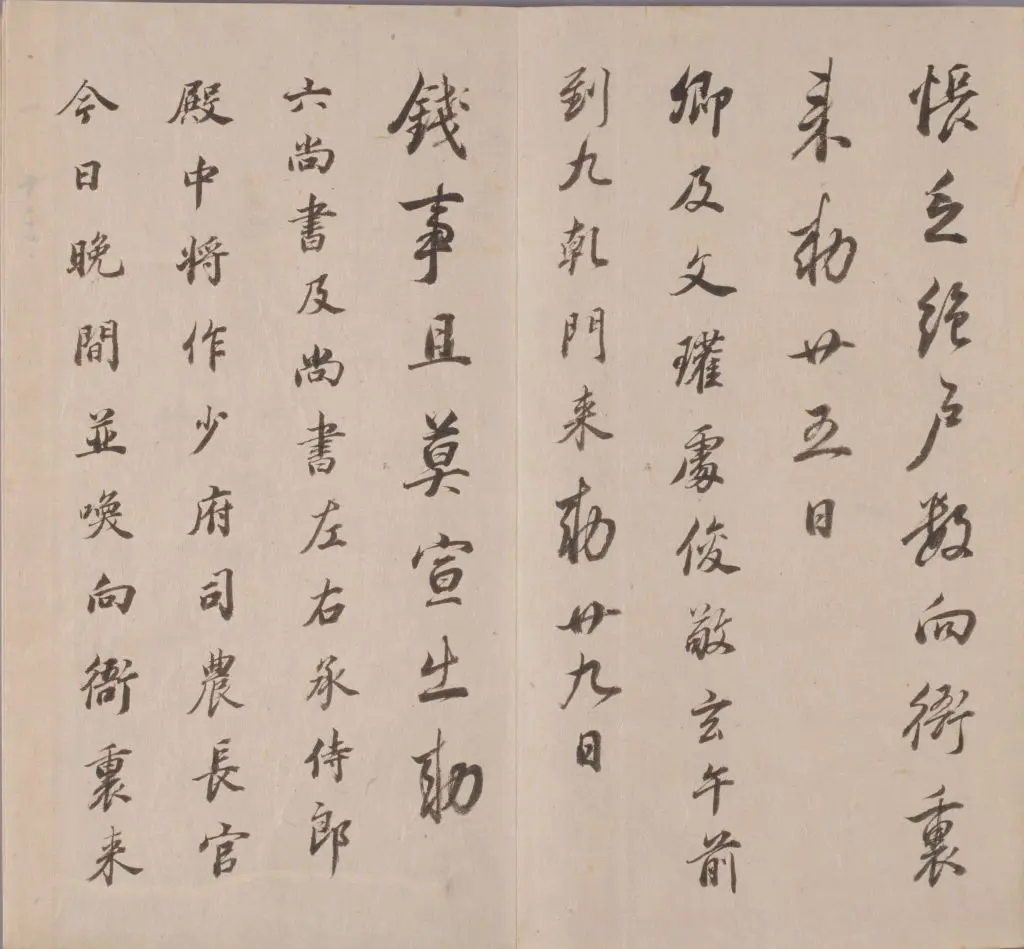 悵之絶戶數向衙裏
来勅廿五日
卿及文瓘處俊敬玄午前
到九乹門来勅廿九日
錢事且莫宣出勅
六尚書及尚書左右承侍郎
殿中将作少府司農長官
今日晚間並喚向衙裏来